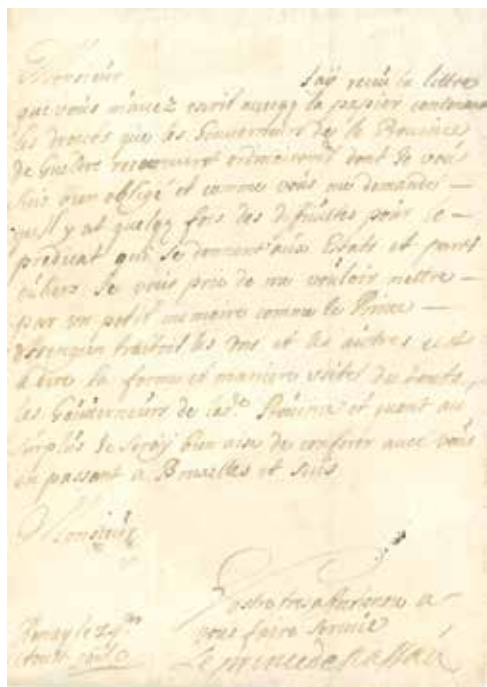 Monsieur
J'ay receu la lettre
que vous m'avez escrit avecq le papier contenant
les droits que les Gouverneurs de la Province
de Gueldre recouvrent ordinairement dont je vous
suis bien obligé et comme vous me demandé
qu'il y at quelq fois des difficultes pour le
predicat qui se donnent aux Estats et parti
culiers Je vous prie de me vouloir mettre
par un petit memoire comme le Prince
traitoit les uns et les autres c'est
a dire la forme et maniere usitée de touts
les Gouverneurs de lad.e Province et quant au
surplus Je seray bien aise de conferer avec vous
en passant a Bruxelles et suis
Monsieur
Vostre tres affectionné a
vous faire service
Le prince de Nassau